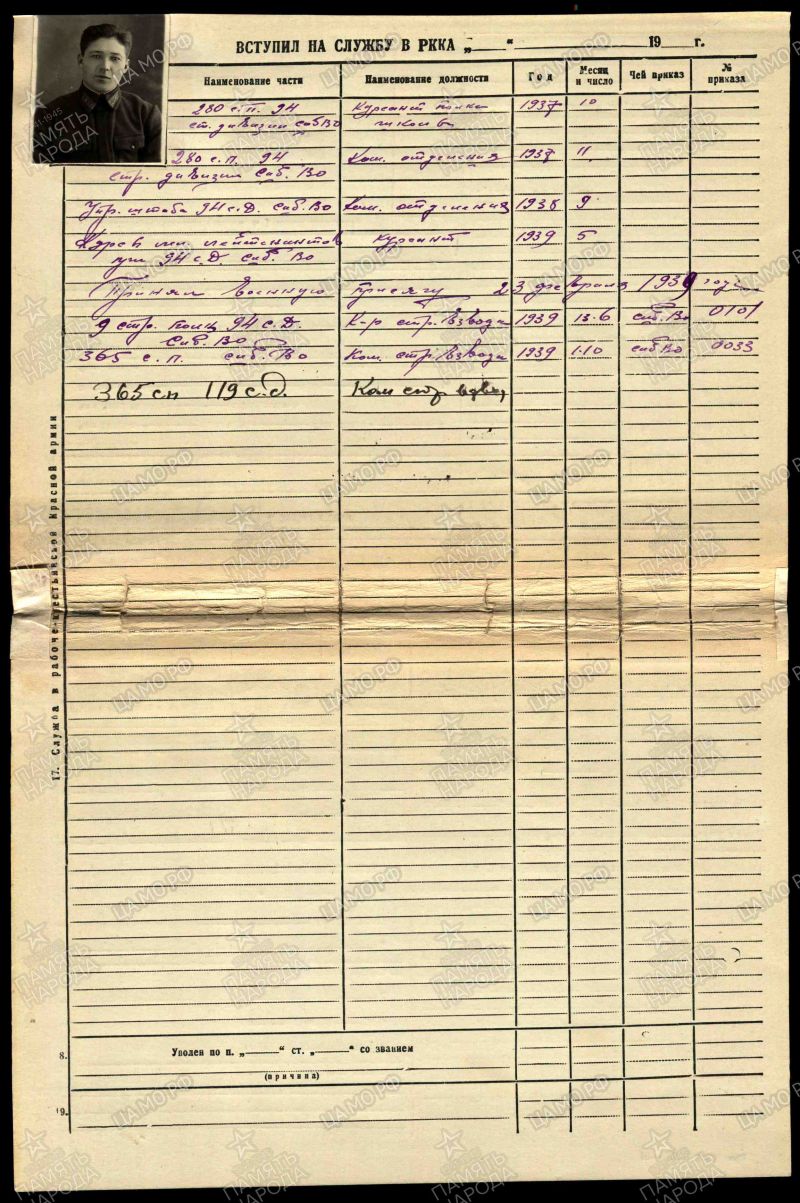 ВСТУПИЛ НА СЛУЖБУ В РККА „ “ 19 г.
Наименование части Наименование должности Год Месяц и число Чей приказ № приказа
280 с.п. 94 Курсант полк 1937 10
ст. дивизии Сиб ВО школы
280 с.п. 94 Ком. отделения 1937 11
стр. дивизии Сиб. ВО
Упр. штаба 94 с.д. Сиб. ВО Ком. отделения 1938 9
Курсы мл. лейтенантов курсант 1939 5
при 94 с.д. Сиб. ВО
Принял военную присягу 23 февраля 1939 года
9 стр. полк 94 с.д. К-р стр. взвода 1939 13.6 сиб. Во 0101
Сиб ВО
365 с.п. сиб. Во Ком. стр. взвода 1939 1.10 сиб Во 0033
365 сп 119 с.д. Ком стр взвод
17. Служба в рабоче-крестьянской Красной армии
8. Уволен по п. „ “ ст. „ “ со званием
(причина)
19.
1945
ПАМЯТЬ НАРОДА
ЦАМО.РФ